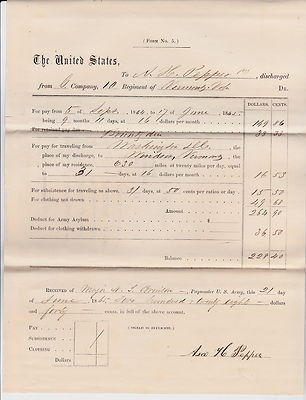 ( FORM No. 5. )
The United States,
To A. H. Pepper, discharged
from C. Company, 10 Regiment of Vermont Vols DR.
DOLLARS. CENTS.
For pay from 5 of Sept. 1864, to 17 of June 1865,
being 9 months 12 days, at 16 dollars per month 149 86
For retained pay due
For pay for traveling from Washington D.C.
the place of my discharge, to Windsor, Vermont,
the place of my residence, 630 miles, at twenty miles per day, equal
to 31 days, at 16 dollars per month, 16 53
For subsistence for traveling as above, 31 days, at 50 cents per ration or day 15 50
For clothing not drawn 49 60
Amount 264 90
Deduct for Army Asylum
Deduct for clothing withdrawn 36 50
Balance 228 40
RECEIVED of Major Paymaster U. S. Army, this 21 day
of June 1865, Two hundred twenty eight
dollars and forty cents, in full of the above account.
PAY
SUBSISTENCE
CLOTHING
Dollars
(SIGNED IN DUPLICATE.)
Asa H. Pepper